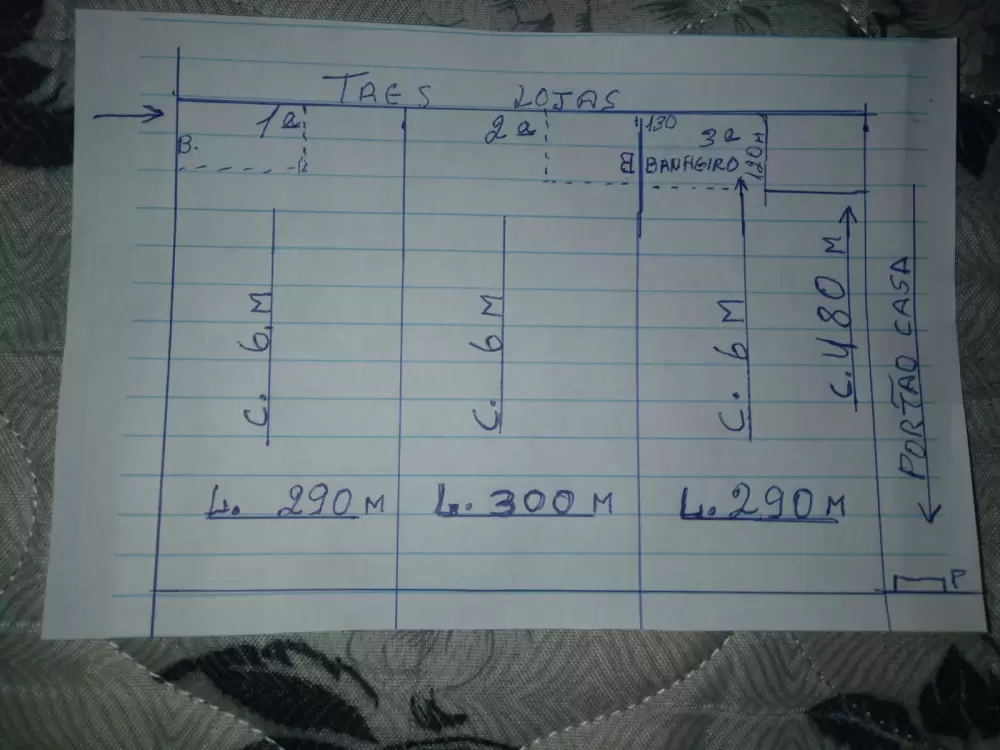 TRES LOJAS
1a
B.
2a
B
130
3a
BANHEIRO
120 M
C. 6 M
C. 6 M
C. 6 M
C. 480 M
PORTÃO CASA
L. 290 M
L. 300 M
L. 290 M
P